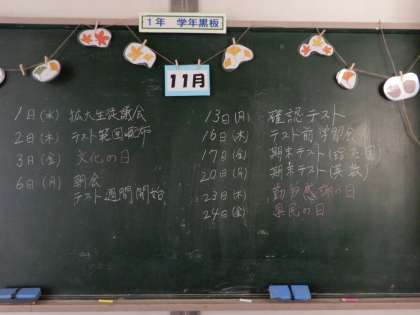 1年 学年黒板
11月
1日(水) 拡大生徒議会
2日(木) テスト範囲配布
3日(金) 文化の日
6日(月) 朝会
テスト週間開始
13日(月) 確認テスト
16日(木) テスト前学習会
17日(金) 期末テスト(
20日(月) 期末テスト(英数)
23日(木) 勤労感謝の日
24日(金) 県民の日